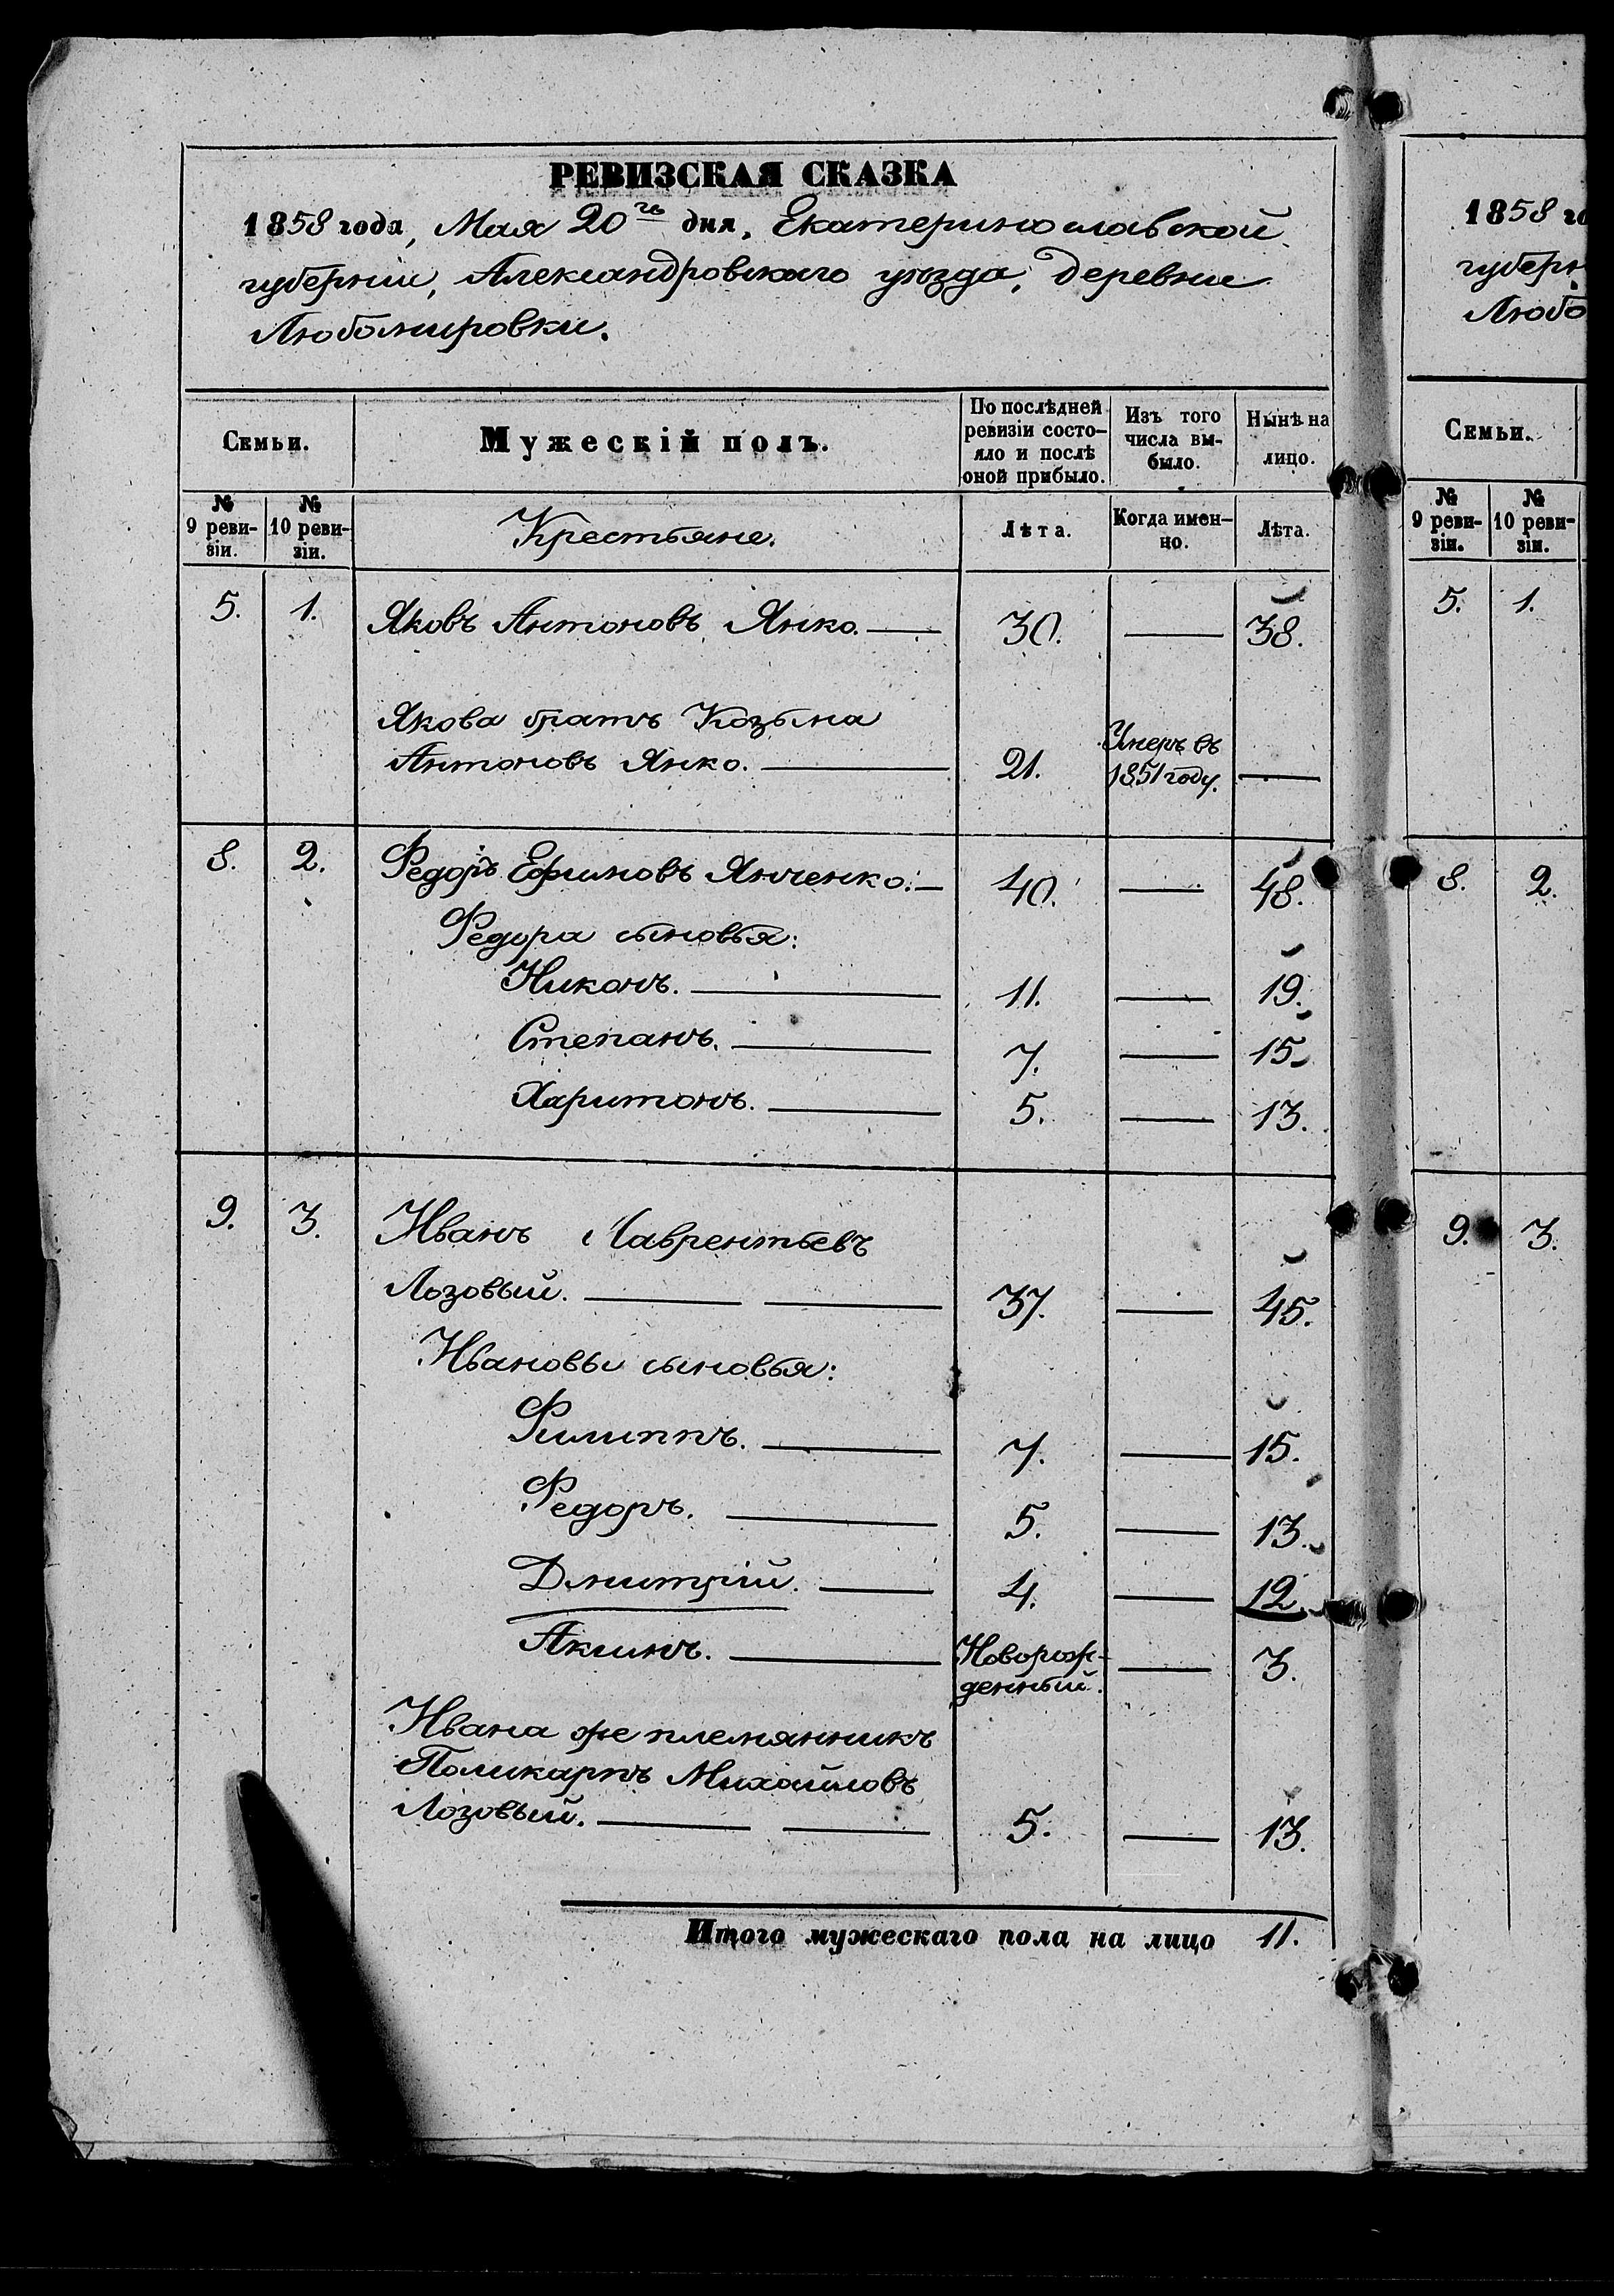 РЕВИЗСКАЯ СКАЗКА
1858 года, Мая 20го дня, Екатеринославской
губернiи, Александровскаго уѣзда, деревни
Любомировки.
Семьи.
Мужескiй полъ.
По послѣдней
ревизiи состо-
яло и послѣ
оной прибыло.
Изъ того
числа вы-
было.
Нынѣ на
лицо.
№
9 реви-
зiи.
№
10 реви-
зiи.
Крестьяне.
Лѣта.
Когда имен-
но.
Лѣта.
5. 1. Яковъ Антоновъ Янко. 30. 38.
Якова братъ Козьма
Антоновъ Янко. 21. Умеръ въ
1851 году.
8. 2. Федоръ Ефимовъ Янченко. 40. 48.
Федора сыновья:
Никонъ. 11. 19.
Степанъ. 7. 15.
Харитонъ. 5. 13.
9. 3. Иванъ Лаврентьевъ
Лозовый. 37. 45.
Ивановы сыновья:
Филиппъ. 7. 15.
Федоръ. 5. 13.
Дмитрiй. 4. 12.
Акимъ. Новорож-
денный. 3.
Ивана же племянникъ
Поликарпъ Михайловъ
Лозовый. 5. 13.
Итого мужескаго пола на лицо 11.
1858 го
губерн
Любо
Семьи.
№
9 реви-
зiи.
№
10 реви-
зiи.
5. 1.
8. 2.
9. 3.